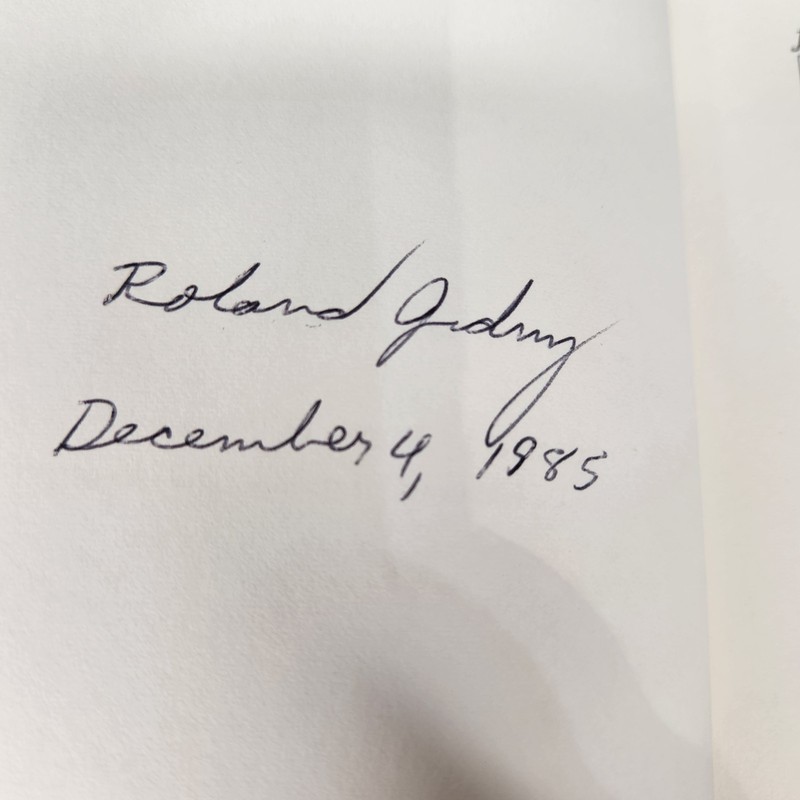 Roland Gidney
December 4, 1985